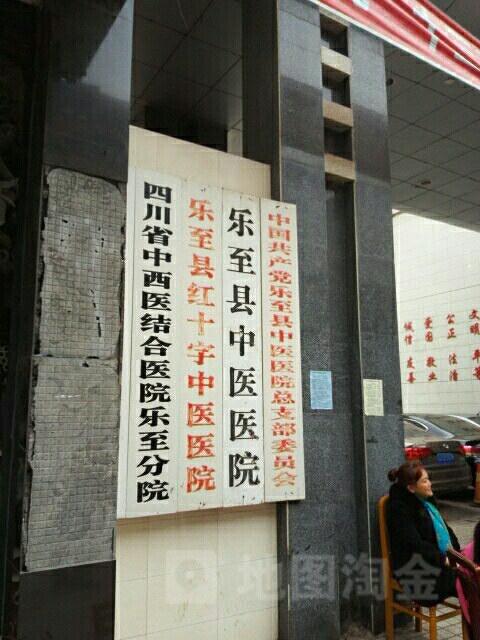 四川省中西医结合医院乐至分院
乐至县红十字中医医院
乐至县中医医院
中国共产党乐至县中医医院总支部委员会
文明
公正
爱国
诚信
平等
法治
敬业
友善
地图淘金